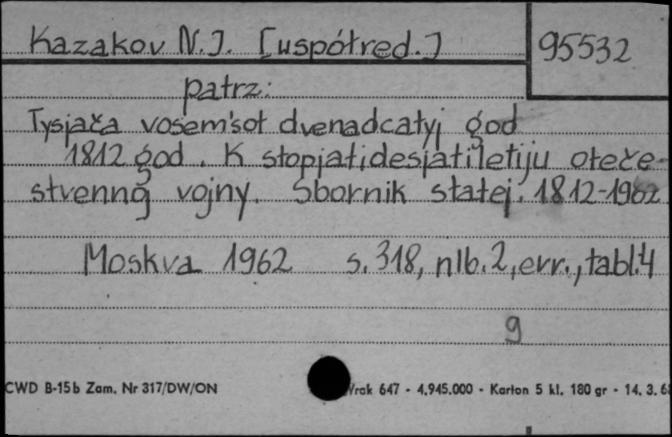 Kazakov N.J. [współred.] 95532
patrz:
Tysjača vosem'sot dvenadcatyj god
1812 god. K stopjatidesjatiletiju oteče-
stvennoj vojny. Sbornik statej. 1812-1962
Moskva 1962 s. 318, nlb. 2, err., tabl. 4
9
CWD B-15b Zam. Nr 317/DW/ON 647 - 4.945.000 - Karton 5 kl. 180 gr - 14. 3. 6